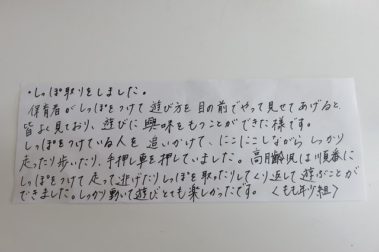 ・しっぽ取りをしました。
保育者がしっぽをつけて遊び方を目の前でやって見せてあげると、
皆よく見ており、遊びに興味をもつことができた様です。
しっぽをつけている人を追いかけて、にこにこしながらしっかり
走ったり歩いたり、手押し車を押していました。高月齢児は順番に
しっぽをつけて走って逃げたりしっぽを取ったりしてくり返して遊ぶことが
できました。しっかり動いて遊びとても楽しかったです。〈もも年少組〉